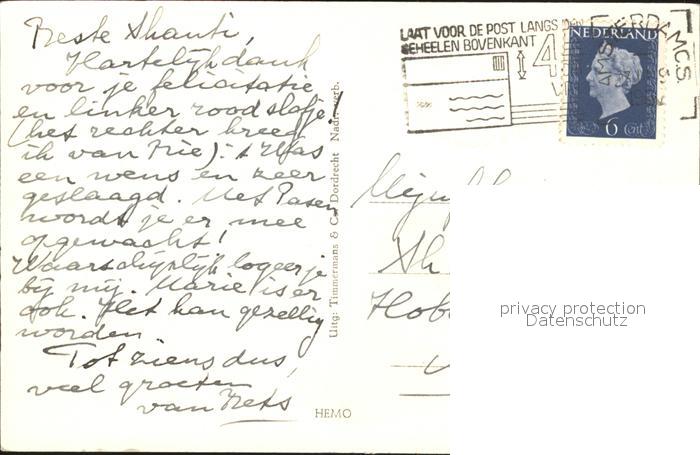 Beste Shanti,
Hartelijk dank
voor je felicitatie
en linker rood slofje!
(het rechter kreeg
ik van Mie). 't Was
een wens en zeer
geslaagd. Met Pasen
wordt je er mee
opgewacht!
Waarschijnlijk logeer je
bij mij. Marie is er
ook. Het kan gezellig
worden.
Tot ziens dus,
veel groeten
van Jets
Uitg: Timmermans & Co, Dordrecht Nadr. verb.
HEMO
LAAT VOOR DE POST LANGS DEN
GEHEELEN BOVENKANT
4
AMSTERDAM C.S.
NEDERLAND
6 Cent
Sh
privacy protection
Datenschutz